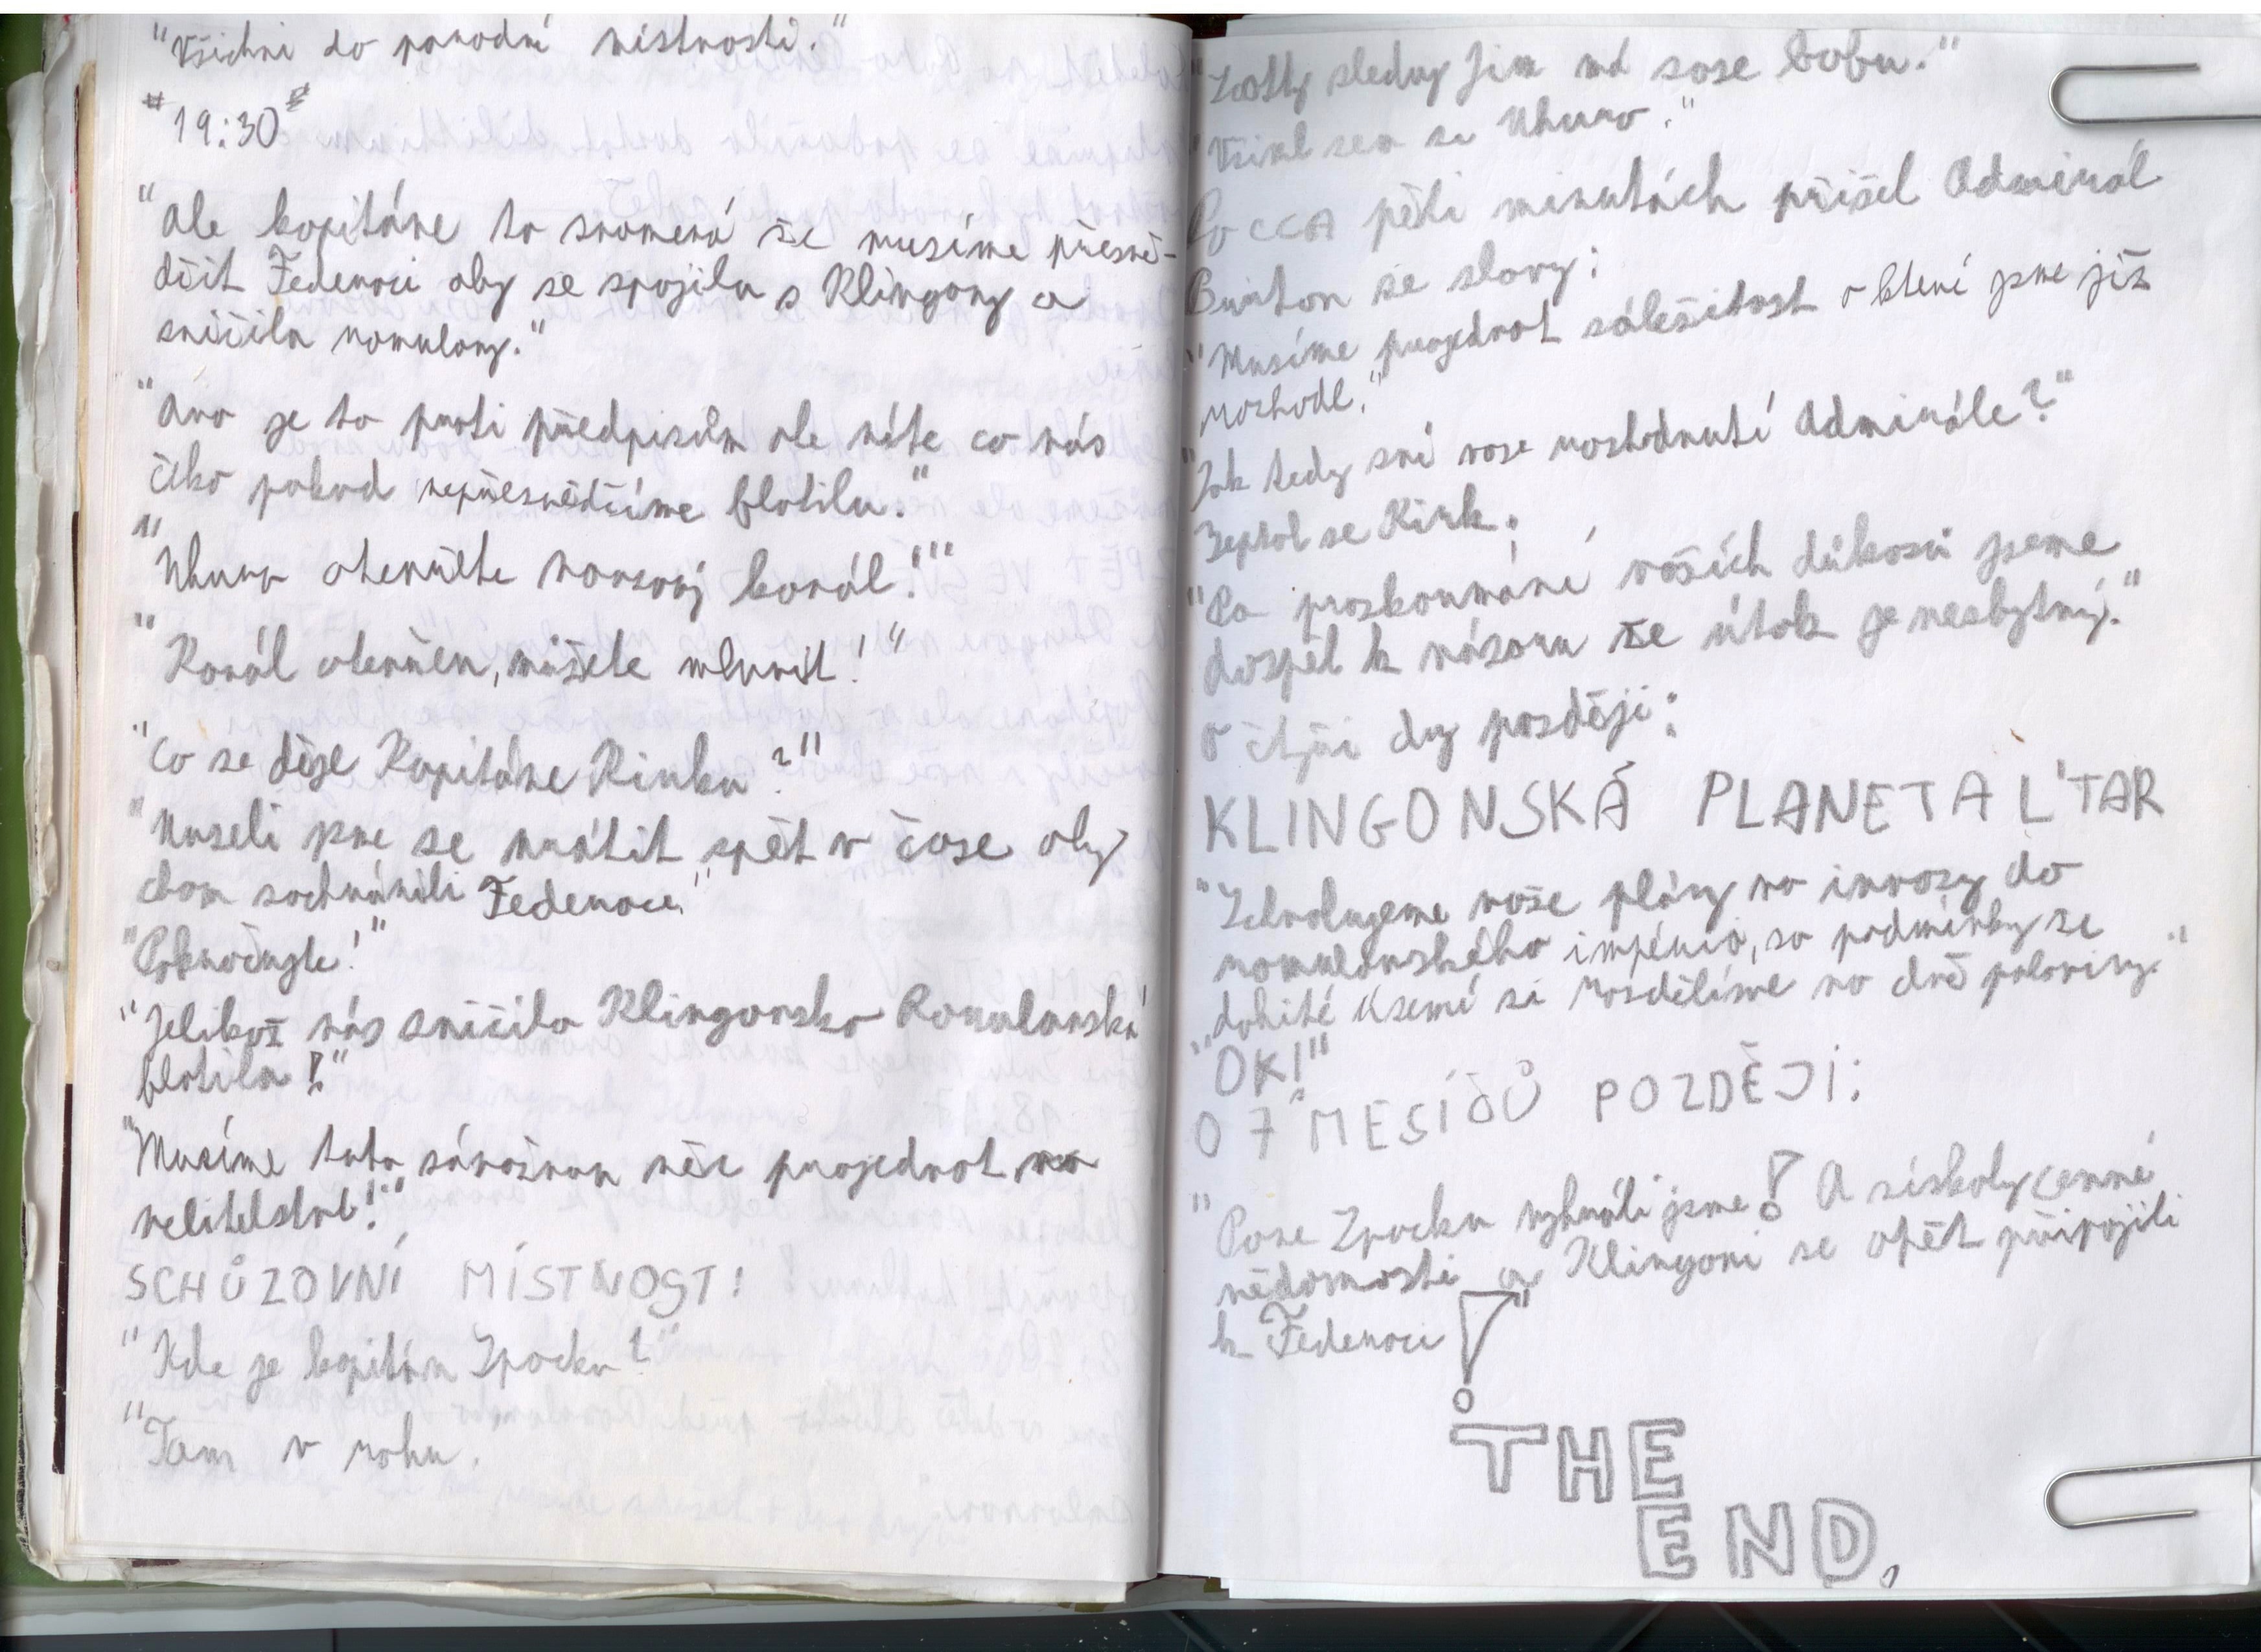 "Všichni do poradní místnosti."
"19:30"
"Ale kapitáne to znamená že musíme přesvě-
dčit Federaci aby se spojila s Klingony a
zničila romulany."
"Ano je to proti předpisům ale víte co nás
čeká pokud nepřesvědčíme flotilu."
"Uhuro otevřete nouzový kanál!"
"Kanál otevřen, můžete mluvit!"
"Co se děje Kapitáne Kirku?"
"Museli jsme se vrátit zpět v čase aby
chom zachránili Federaci."
"Pokračujte!"
"Jelikož nás zničila Klingonsko Romulanská
flotila!"
"Musíme tuto závažnou věc projednat na
velitelství!"
SCHŮZOVNÍ MÍSTNOST:
"Kde je kapitán Spocku?"
"Tam v rohu.
"Scotty sleduj Jim má zase bobu."
"Všiml sem si Uhuro."
Po CCA pěti minutách přišel Admirál
Burton se slovy:
"Musíme projednat záležitost o které jsme již
rozhodl."
"Jak tedy zní vaše rozhodnutí Admirále?"
Zeptal se Kirk.
"Po proskoumání vašich důkazů jseme
dospěl k názoru že útok je nezbytný."
O čtyři dny později:
KLINGONSKÁ PLANETA L'TAR
"Schvalujeme vaše plány na invazy do
romulanského impéria, za podmínky se
dobité území si rozdělíme na dvě poloviny."
"OK!"
O 7 MĚSÍCŮ POZDĚJI:
"Pane Spocku vyhráli jsme! A získaly cenné
vědomosti a Klingoni se opět připojili
k Federaci!"
THE
END.